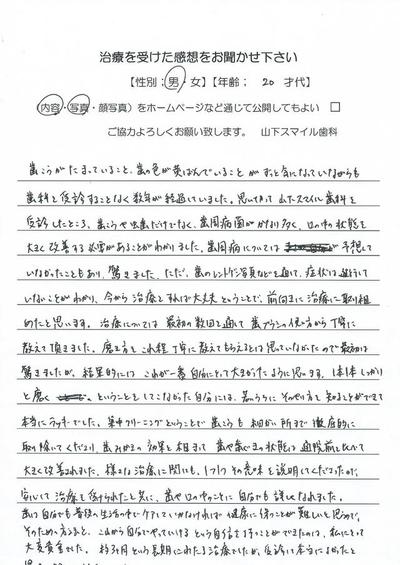 治療を受けた感想をお聞かせ下さい
【性別；男・女】【年齢； 20 才代】
（内容・写真・顔写真）をホームページなど通じて公開してもよい □
ご協力よろしくお願い致します。 山下スマイル歯科
歯こうがたまっていること、歯の色が黄ばんでいることがずっと気になっていながらも
歯科を受診することなく数年が経過していました。思い切って山下スマイル歯科を
受診したところ、歯こうや虫歯だけでなく、歯周病菌がかなり多く、口の中の状態を
大きく改善する必要があることがわかりました。歯周病については 予想して
いなかったこともあり、驚きました。ただ、歯のレントゲン写真などを通して、症状は進行して
いないことがわかり、今から治療をすれば大丈夫ということで、前向きに治療に取り組
めたと思います。治療については最初の数回を通して歯ブラシの使い方から丁寧に
教えて頂きました。磨き方をこれ程丁寧に教えてもらえるとは思っていなかったので最初は
驚きましたが、結果的にはこれが一番自分にとって大きかったように思います。1本1本しっかり
と磨く ということをしてこなかった自分には、若いうちにそのやり方を知ることができて
本当にラッキーでした。集中クリーニングということで歯こうも細かい所まで徹底的に
取り除いてくださり、歯みがきの効果と相まって歯や歯ぐきの状態は通院前と比べて
大きく改善されました。様々な治療に関しても、1つ1つその意味を説明してくださったので、
安心して治療を受けられたと共に、歯や口の中のことに自分でも詳しくなれました。
歯は自分でも普段の生活の中でケアしていかなければ健康に保つことが難しいと思うので、
そのための方法と、これから自分でやっていけるという自信を持つことができたのは、私にとって
大変貴重でした。約3か月という長期にわたる治療でしたが、受診して本当によかったと